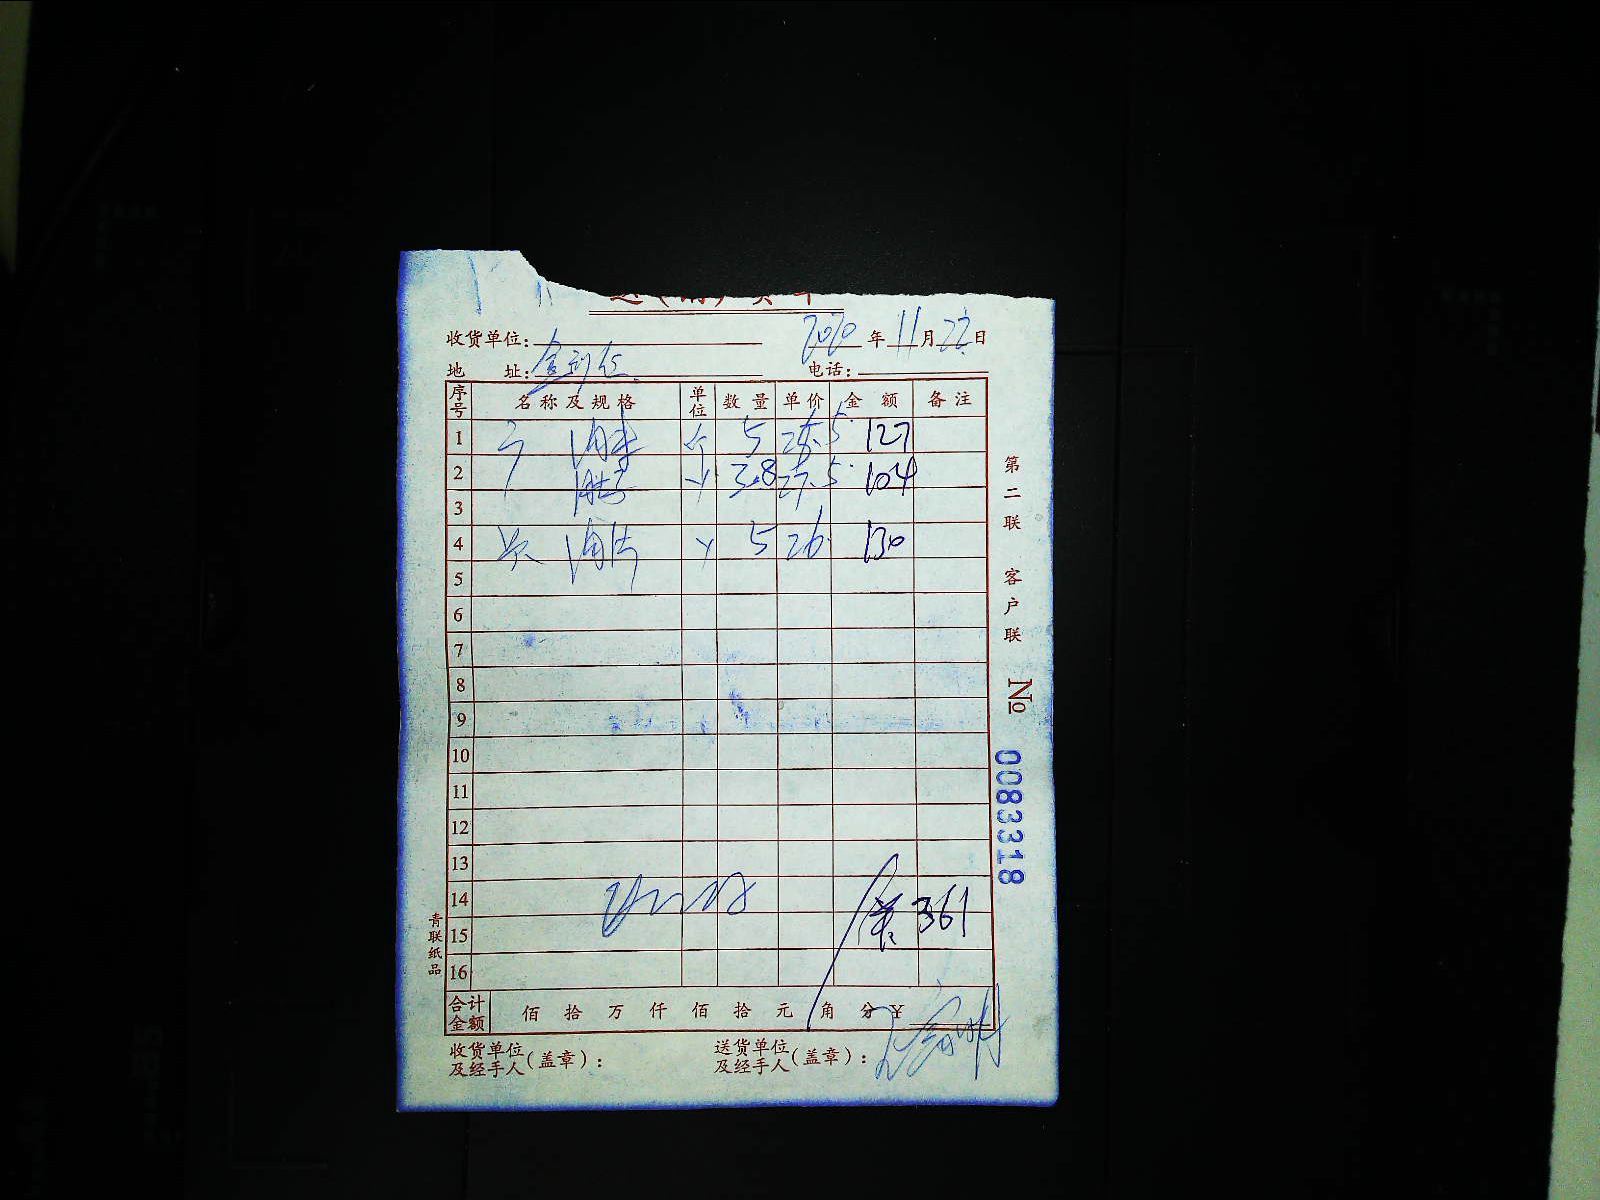 收货单位: 2020 年 11 月 22 日
地 址: 电话:
序号 名称及规格 单位 数量 单价 金额 备注
1 个 5 25.5 127
2 3.8 27.5 104
3
4 5 26 130
5
6
7
8
9
10
11
12
13
14
361
15
16
合计金额 佰 拾 万 仟 佰 拾 元 角 分 ¥
收货单位及经手人(盖章): 送货单位及经手人(盖章):
第二联 客户联
No 0083318
青联纸品